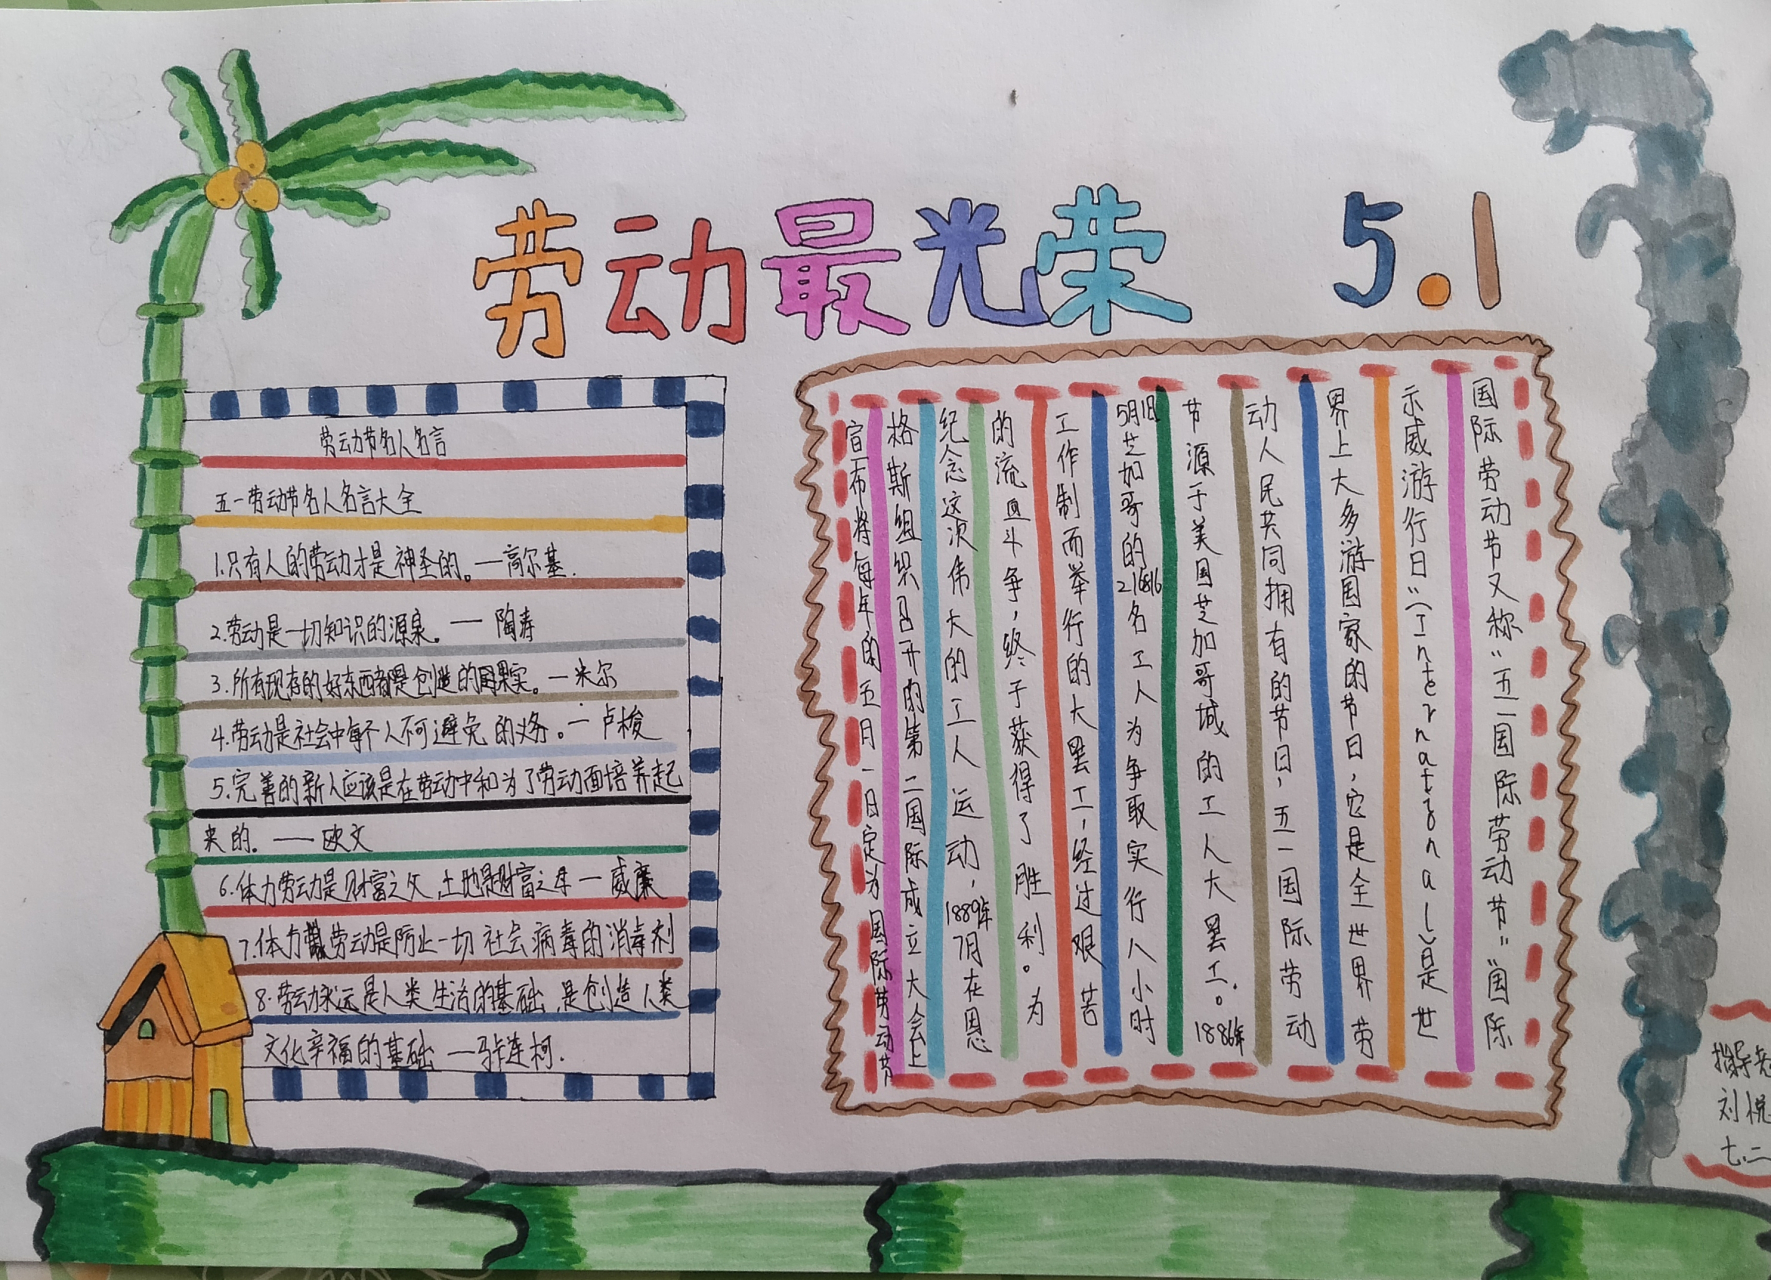 劳动最光荣 5.1
劳动节名人名言
五一劳动节名人名言大全
1.只有人的劳动才是神圣的。—高尔基.
2.劳动是一切知识的源泉。— 陶寿
3.所有现存的好东西都是创造的果实。—米尔
4.劳动是社会中每个人不可避免的义务。—卢梭
5.完善的新人应该是在劳动中和为了劳动面培养起
来的. ——欧文
6.体力劳动是财富之父,土地是财富之母—威廉
7.体力劳动是防止一切社会病毒的消毒剂
8.劳动永远是人类生活的基础,是创造人类
文化幸福的基础 —马卡连柯.
国际劳动节又称“五一国际劳动节”“国际
示威游行日”(International)是世
界上大多游国家的节日,它是全世界劳
动人民共同拥有的节日,五一国际劳动
节源于美国芝加哥城的工人大罢工。1886年
5月1日芝加哥的21616名工人为争取实行八小时
工作制而举行的大罢工,经过艰苦
的流血斗争,终于获得了胜利。为
纪念这次伟大的工人运动,1889年7月在恩
格斯组织召开的第二国际成立大会上
宣布将每年的五月一日定为国际劳动节
指导老
刘悦
七.二